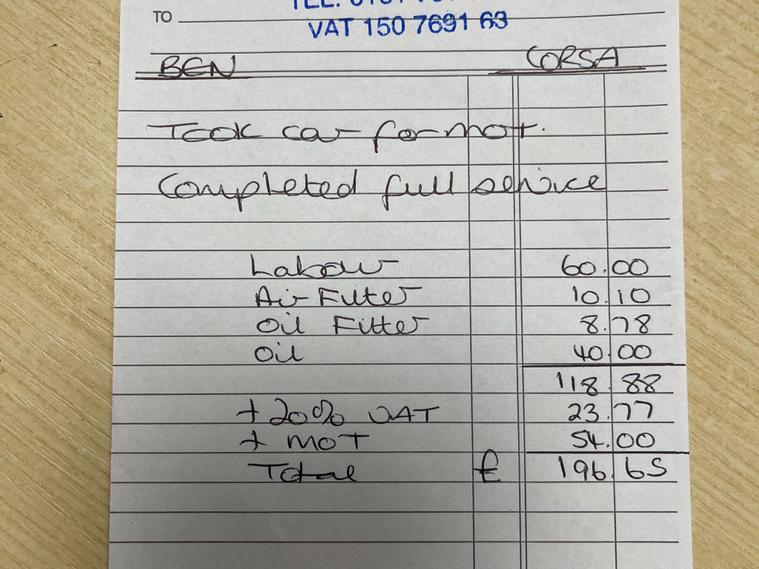 TO
VAT 150 7691 63
BEN CORSA
Took car for mot.
Completed full service
Labour 60.00
Air Filter 10.10
Oil Filter 8.78
Oil 40.00
118.88
+ 20% VAT 23.77
+ MOT 54.00
Total £ 196.65